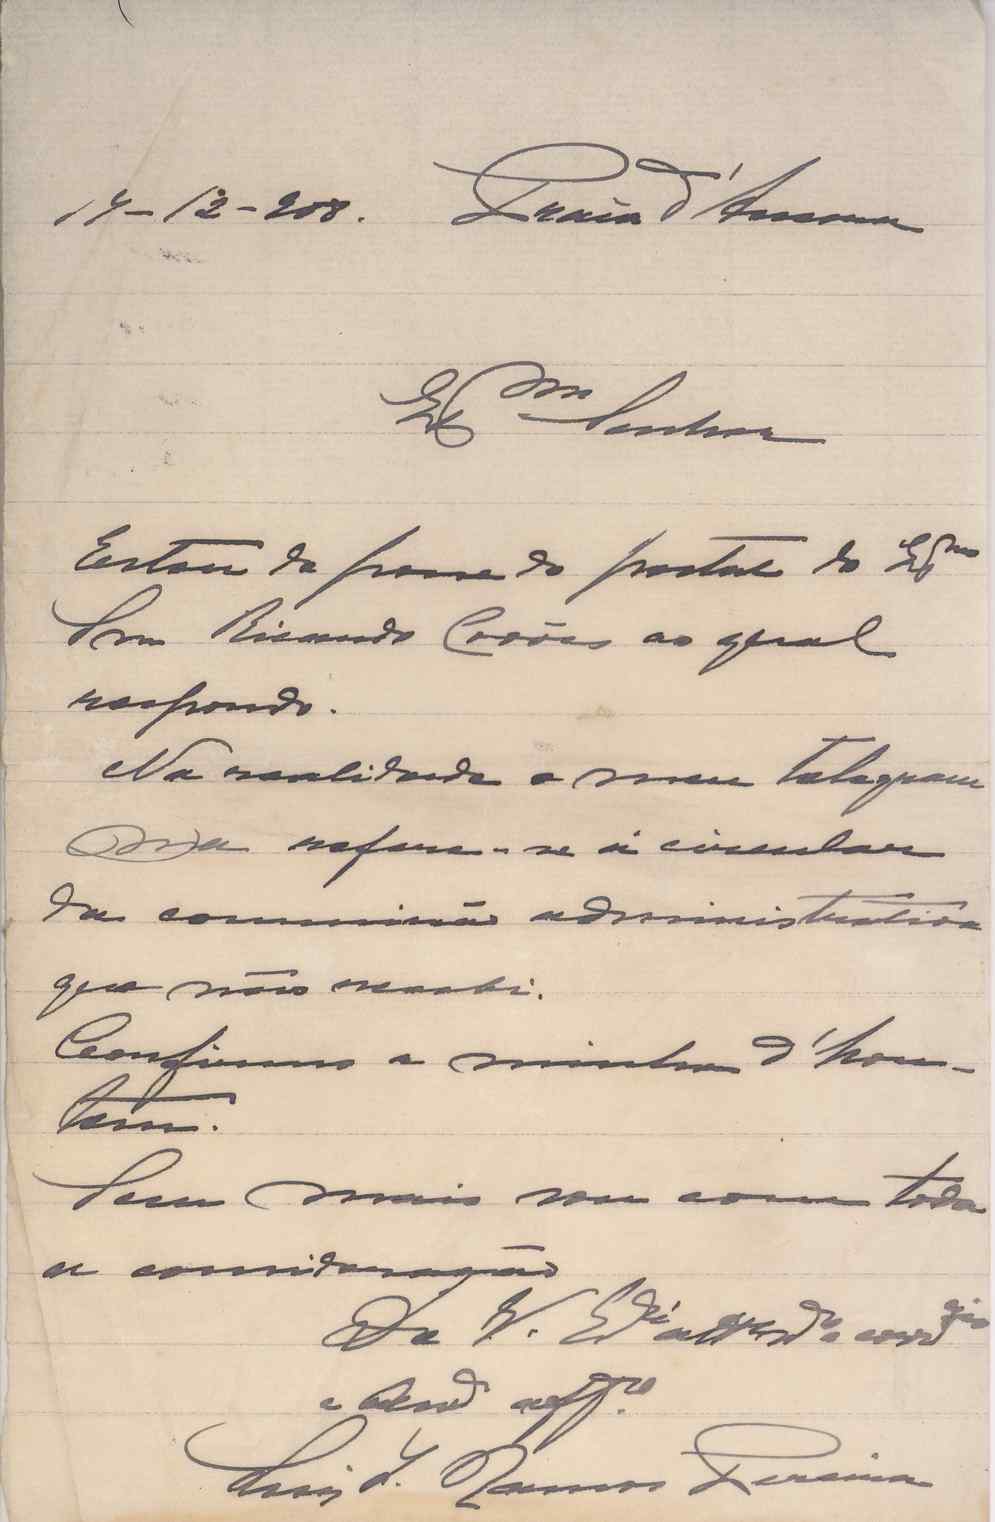 17-12-908. Praia d'Ancora
Exmo Senhor
Estou de posse do postal do Exmo
Snr Ricardo Covões ao qual
respondo.
Na realidade o meu telegram
ma refere-se á circular
da commissão administrativa
que não recebi.
Confirmo a minha d'hon-
tem.
Sem mais sou com toda
a consideração
De V. Ex.
e
Luiz I. Ramos Pereira